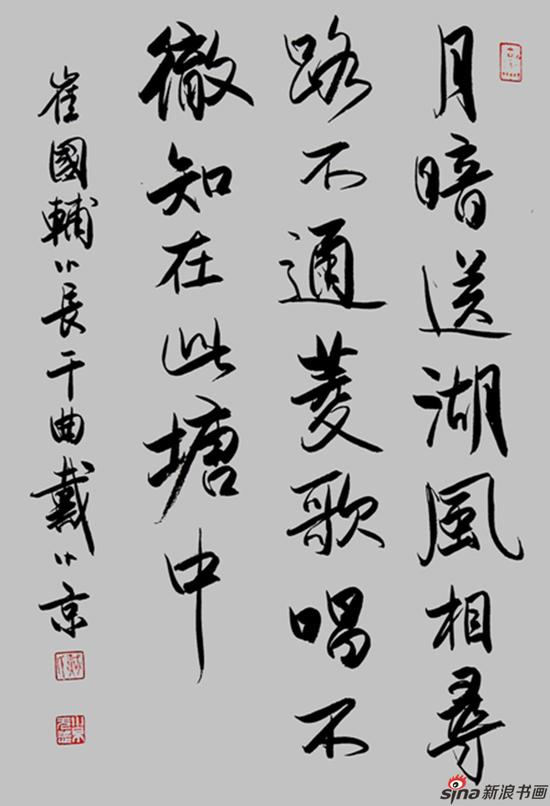 月暗送湖風相尋
路不通菱歌唱不
徹知在此塘中
崔國輔小長干曲戴小京
sina新浪书画